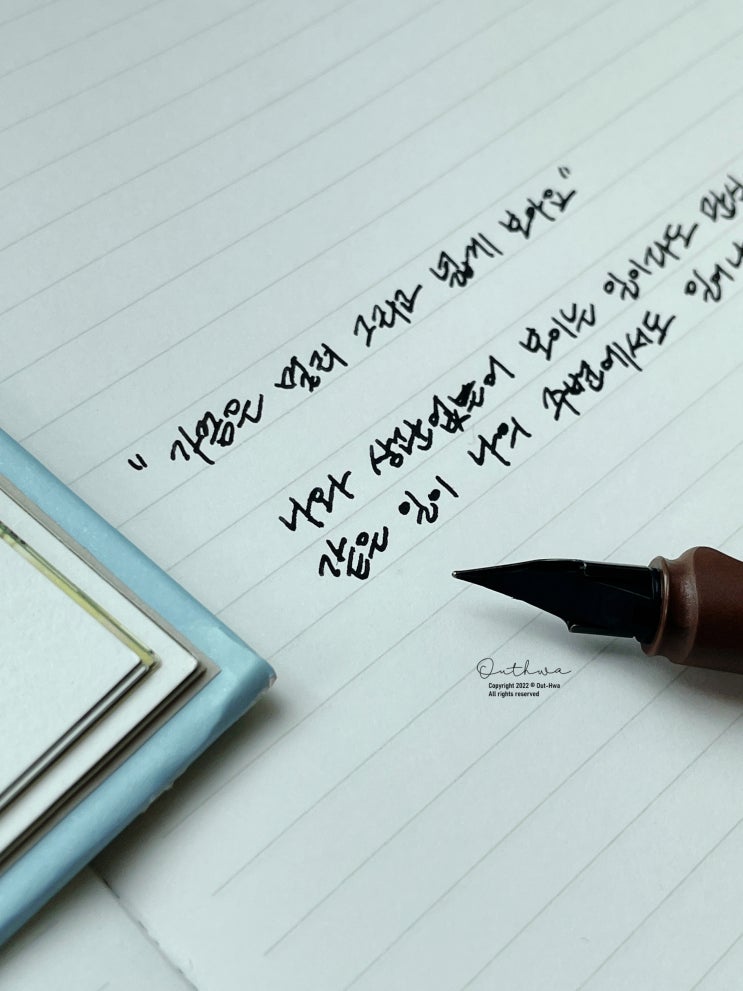 " 가끔은 멀리 그리고 넓게 보아요 "
나와 상관없는 보이는 일이라도
같은 일이 나의 주변에서도 일어나
Outhwa
Copyright 2022 © Out-Hwa
All rights reserved